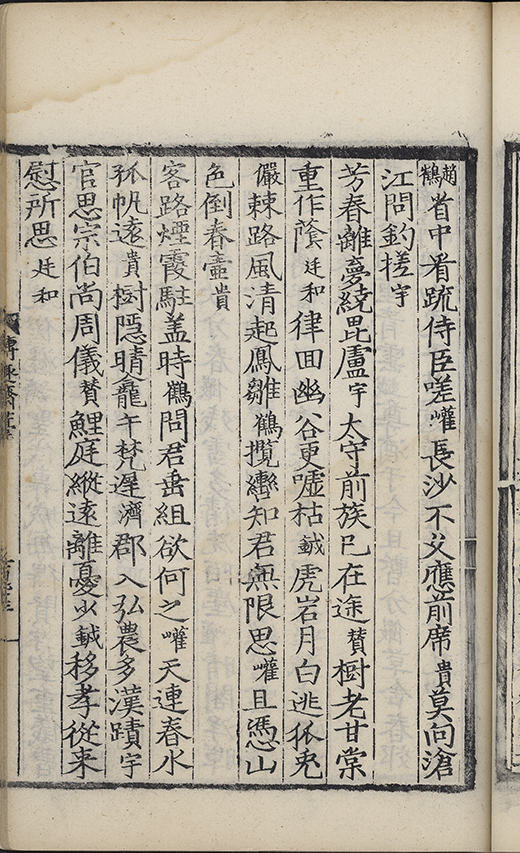 趙鶴省中看疏侍臣嗟巏長沙不久應前席貴莫向滄
江問釣搓宇
芳春離憂繞毘盧宇太守前族已在途賛樹老甘棠
重作蔭廷和律回幽谷更噓枯鉞虎岩月白逃狐兎
儼棘路風清起鳳雛鶴攬轡知君無限思巏且憑山
色倒春壷貴
客路煙霞駐盖時鶴問君垂組欲何之巏天連春水
孤帆遠貴樹隱晴龕午梵遲濟郡入弘農多漢蹟宇
官思宗伯尚周儀賛鯉庭縱遠離憂少鉞移孝從来
慰所思廷和